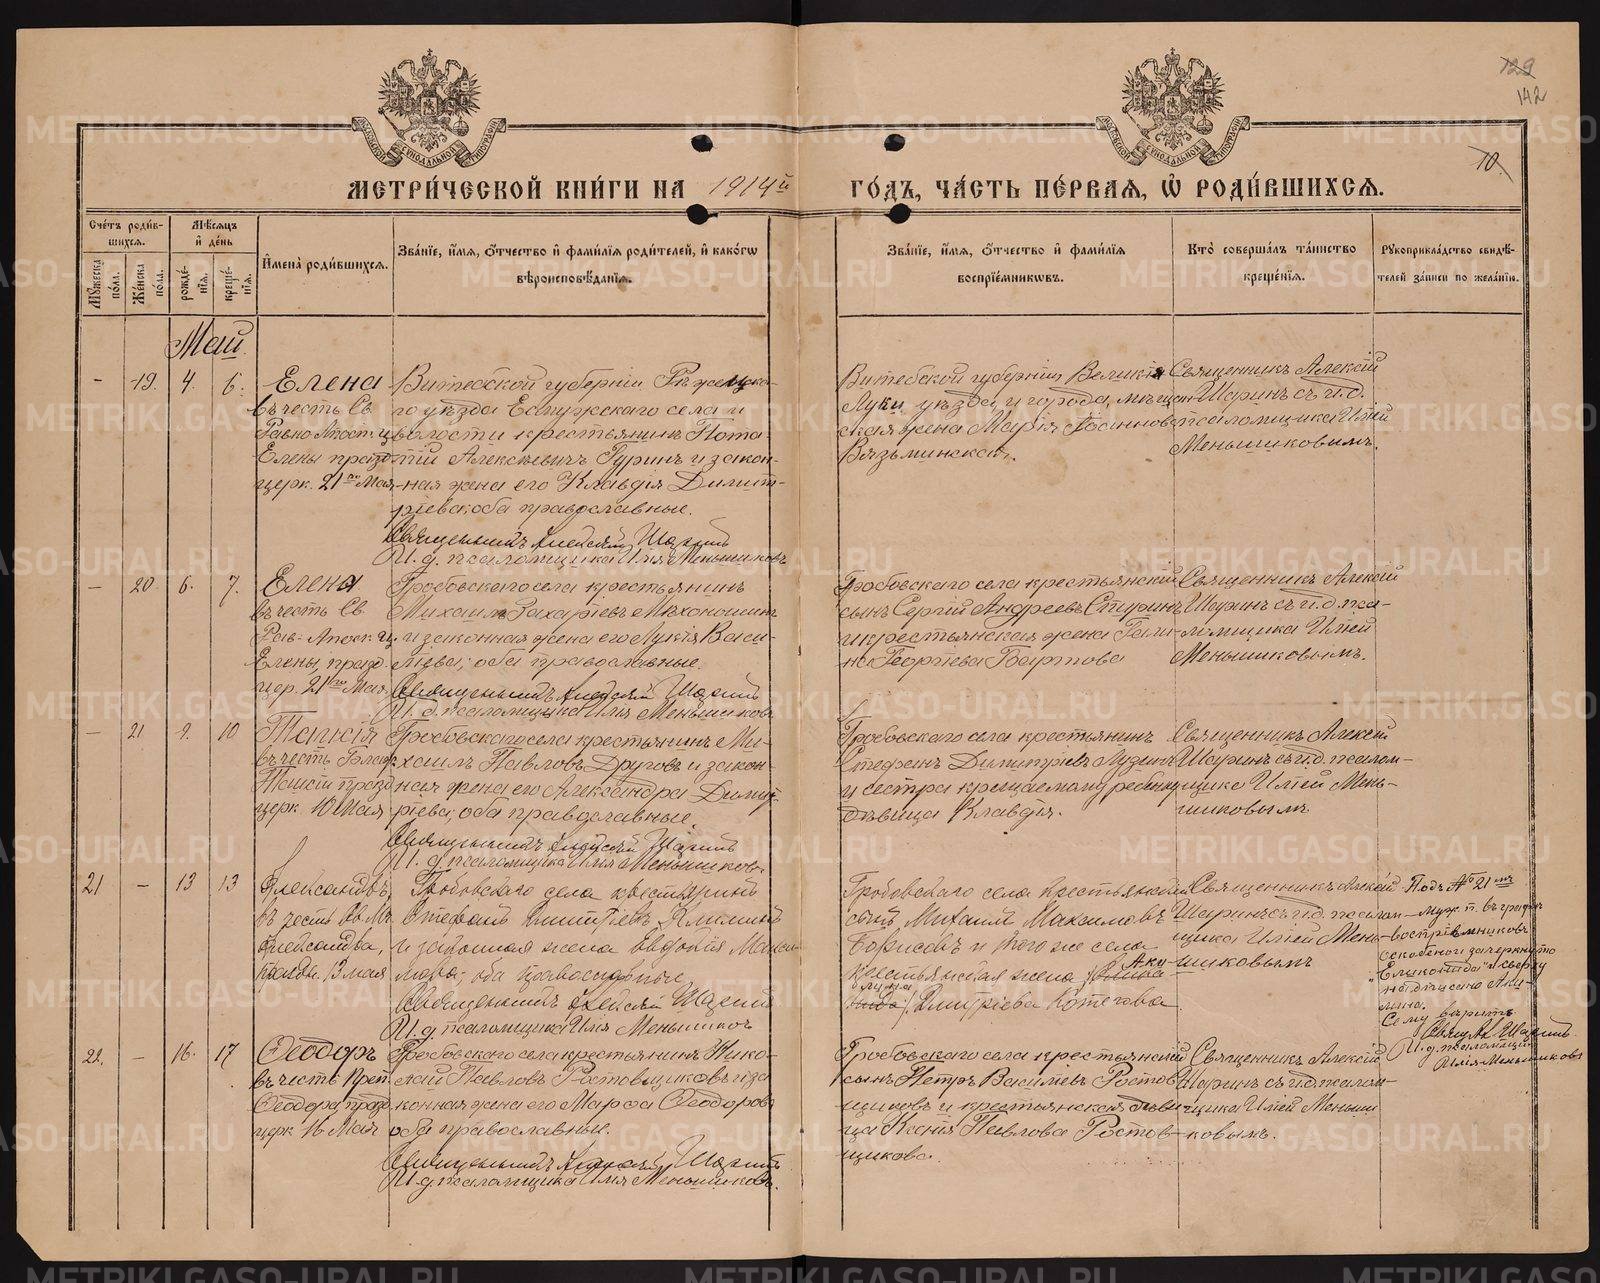 129
142
70.
МОСКОВСКОЙ СѴНОДАЛЬНОЙ ТИПОГРАФІИ
МОСКОВСКОЙ СѴНОДАЛЬНОЙ ТИПОГРАФІИ
МЕТРИ́ЧЕСКОЙ КНИ́ГИ НА 1914й ГО́ДЪ, ЧА́СТЬ ПЕ́РВАЯ, Ѽ РОДИ́ВШИХСЯ.
Сче́тъ роди́в-
шихся.
Мѣ́сяцъ
и҆ де́нь
Мꙋ́жеска
по́ла.
Же́нска
по́ла.
рожде́-
нїя.
креще́-
нїя.
И҆мена̀ роди́вшихся.
Зва́нїе, и҆́мя, ѻ҆́тчество и҆ фами́лїя роди́телей, и҆ како́гѡ
вѣроисповѣ́данїя.
Зва́нїе, и҆́мя, ѻ҆́тчество и҆ фами́лїя
воспрїе́мникѡвъ.
Кто̀ соверша́лъ та́инство
креще́нїя.
Рꙋкоприкла́дство свидѣ́-
телей за́писи по жела́нїю.
Май.
- 19. 4. 6.
Елена
въ честь Св.
Равно Апост. ц.
Елены празд.
церк. 21го Мая
Витебской губерніи Рѣжецка-
го уѣзда Еснужскаго села и
волости крестьянинъ Пота-
пій Алексѣевичъ Гуринъ и закон-
ная жена его Клавдія Димит-
ріева; оба православные.
Священникъ Алексій Шаринъ
И. д. псаломщика Илія Меньшиковъ
Витебской губерніи Великія
Луки уѣзда и города, мѣщан-
ская жена Марія Іоаннова
Вязьминская.
Священникъ Алексій
Шаринъ съ и. д.
псаломщика Иліей
Меньшиковымъ.
- 20. 6. 7.
Елена
въ честь Св.
Рав-Апост. ц.
Елены, празд.
цер. 21го Мая
Гробовскаго села крестьянинъ
Михаилъ Захаріевъ Мѣхоношинъ
и законная жена его Лукія Васи-
ліева; оба православные.
Священникъ Алексій Шаринъ
И. д. псаломщика Илія Меньшиковъ
Гробовскаго села крестьянскій
сынъ Сергій Андреевъ Стиринъ
и крестьянская жена Гали-
на Георгіева Бартова
Священникъ Алексій
Шаринъ съ и. д. пса-
ломщика Иліей
Меньшиковымъ.
- 21 9. 10
Таисія
въ честь Благ.
Таисіи празд.
церк. 10 Мая
Гробовскаго села крестьянинъ Ми-
хаилъ Павловъ Друговъ и закон-
ная жена его Александра Димит-
ріева; оба православные.
Священникъ Алексій Шаринъ
И. д. псаломщика Илія Меньшиковъ
Гробовскаго села крестьянинъ
Стефанъ Димитріевъ Лузинъ
и сестра крещаемому ребенку
дѣвица Клавдія.
Священникъ Алексій
Шаринъ съ и. д. псалом-
щика Иліей Мень-
шиковымъ
21 - 13 13
Александръ,
въ честь Св. Мч.
Александра,
празд. 13 мая
Гробовскаго села крестьянинъ
Стефанъ Димитріевъ
и законная жена Евдокія Макси-
мова; оба православные
Священникъ Алексій Шаринъ
И. д. псаломщика Илія Меньшиковъ
Гробовскаго села крестьянскій
сынъ Михаилъ Максимовъ
Борисовъ и того же села
крестьянская жена Аку-
лина
Димитріева Котегова
Священникъ Алексій
Шаринъ съ и. д. псалом-
щика Иліей Мень-
шиковымъ
Подъ № 21мъ
муж. п. въ графѣ
воспріемниковъ
въ скобкахъ зачеркнуто
и сверху
надписано Аку-
лина.
Сему вѣрить
Свящ. Ал. Шаринъ.
И. д. псаломщика
Илія Меньшиковъ
22. - 16. 17
Ѳеодоръ
въ честь Преп.
Ѳеодора празд.
церк. 16 Мая
Гробовскаго села крестьянинъ Нико-
лай Павловъ Ростовщиковъ и за-
конная жена его Марѳа Ѳеодорова
оба православные.
Священникъ Алексій Шаринъ
И. д. псаломщика Илія Меньшиковъ.
Гробовскаго села крестьянскій
сынъ Петръ Василіевъ Ростов-
щиковъ и крестьянская дѣви-
ца Ксенія Павлова Ростов-
щикова.
Священникъ Алексій
Шаринъ съ и. д. псалом-
щика Иліей Меньши-
ковымъ.
METRIKI.GASO-URAL.RU